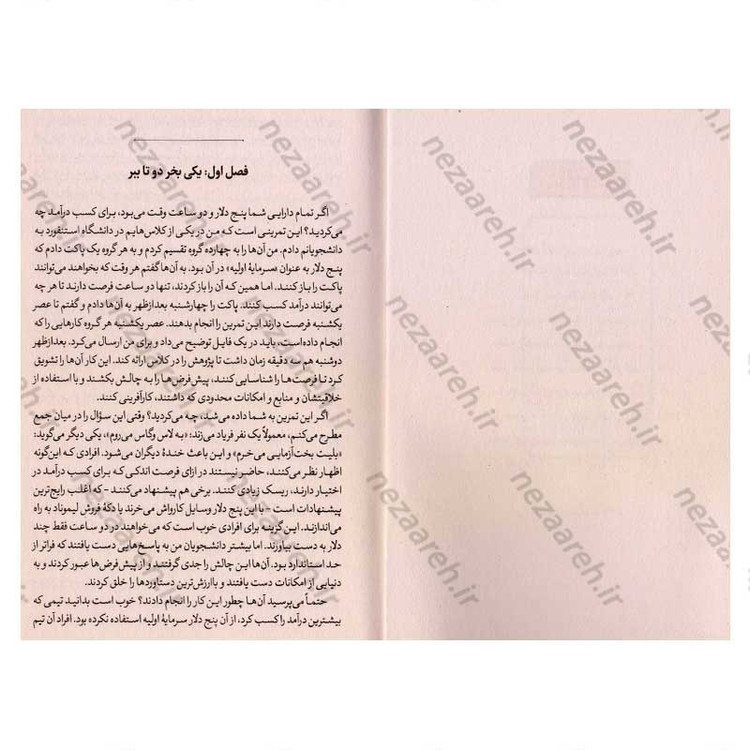 فصل اول: یکی بخر دو تا ببر
اگر تمام دارایی شما پنج دلار و دو ساعت وقت می‌بود، برای کسب درآمد چه
می‌کردید؟ این تمرینی است که من در یکی از کلاس‌هایم در دانشگاه استنفورد به
دانشجویانم دادم. من آن‌ها را به چهارده گروه تقسیم کردم و به هر گروه یک پاکت دادم که
پنج دلار به عنوان «سرمایهٔ اولیه» در آن بود. به آن‌ها گفتم هر وقت که بخواهند می‌توانند
پاکت را باز کنند. اما همین که آن را باز کردند، تنها دو ساعت فرصت دارند تا هر چه
می‌توانند درآمد کسب کنند. پاکت را چهارشنبه بعدازظهر به آن‌ها دادم و گفتم تا عصر
یکشنبه فرصت دارند این تمرین را انجام بدهند. عصر یکشنبه هر گروه کارهایی را که
انجام داده است، باید در یک فایل توضیح می‌داد و برای من ارسال می‌کرد. بعدازظهر
دوشنبه هم سه دقیقه زمان داشت تا پژوهش را در کلاس ارائه کند. این کار آن‌ها را تشویق
کرد تا فرصت‌ها را شناسایی کنند، پیش‌فرض‌ها را به چالش بکشند و با استفاده از
خلاقیتشان و منابع و امکانات محدودی که داشتند، کارآفرینی کنند.
اگر این تمرین به شما داده می‌شد، چه می‌کردید؟ وقتی این سؤال را در میان جمع
مطرح می‌کنم، معمولاً یک نفر فریاد می‌زند: «به لاس وگاس می‌روم»، یکی دیگر می‌گوید:
«بلیت بخت‌آزمایی می‌خرم» و این باعث خندهٔ دیگران می‌شود. افرادی که این‌گونه
اظهار نظر می‌کنند، حاضر نیستند در ازای فرصت اندکی که برای کسب درآمد در
اختیار دارند، ریسک زیادی کنند. برخی هم پیشنهاد می‌کنند - که اغلب رایج‌ترین
پیشنهادات است - با این پنج دلار وسایل کارواش می‌خرند یا دکهٔ فروش لیموناد به راه
می‌اندازند. این گزینه برای افرادی خوب است که می‌خواهند در دو ساعت فقط چند
دلار به دست بیاورند. اما بیشتر دانشجویان من به پاسخ‌هایی دست یافتند که فراتر از
حد استاندارد بود. آن‌ها این چالش را جدی گرفتند و از پیش‌فرض‌ها عبور کردند و به
دنیایی از امکانات دست یافتند و باارزش‌ترین دستاوردها را خلق کردند.
حتماً می‌پرسید آن‌ها چطور این کار را انجام دادند؟ خوب است بدانید تیمی که
بیشترین درآمد را کسب کرد، از آن پنج دلار سرمایهٔ اولیه استفاده نکرده بود. افراد آن تیم
nezaareh.ir
nezaareh.ir
nezaareh.ir
nezaareh.ir
nezaareh.ir
nezaareh.ir
nezaareh.ir
nezaareh.ir